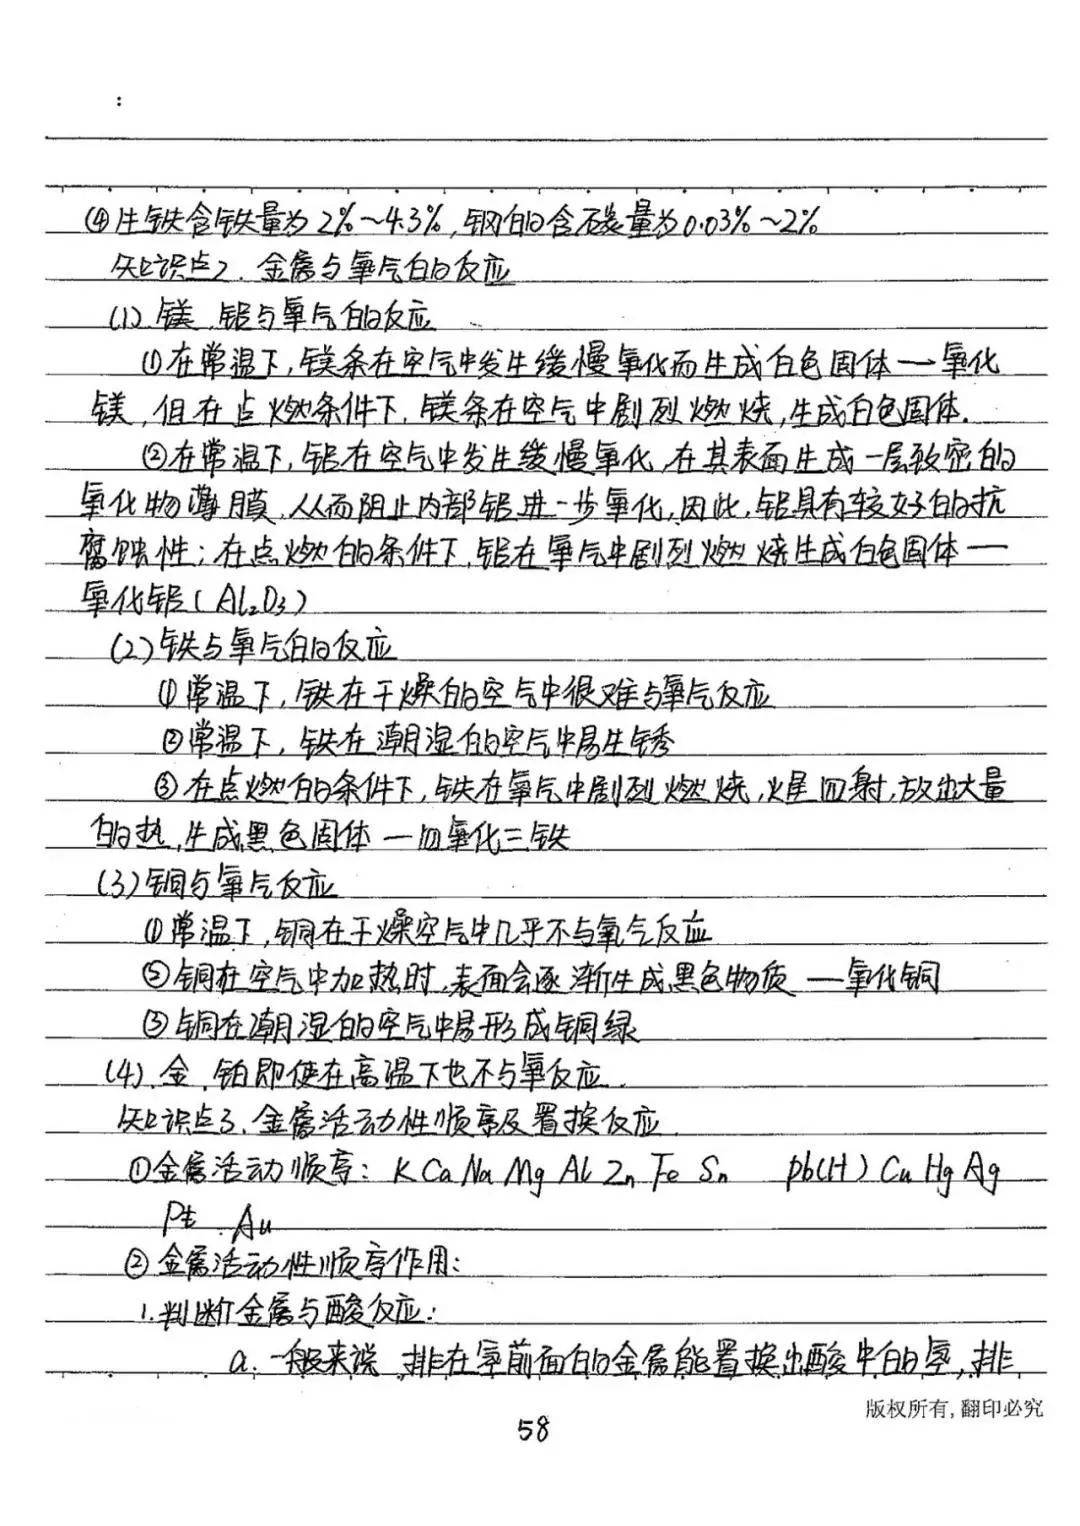 :
④生铁含铁量为2%~4.3%,钢的含碳量为0.03%~2%
知识点2.金属与氧气的反应
(1)镁、铝与氧气的反应
①在常温下,镁条在空气中发生缓慢氧化而生成白色固体一氧化
镁,但在点燃条件下,镁条在空气中剧烈燃烧,生成白色固体.
②在常温下,铝在空气中发生缓慢氧化,在其表面生成一层致密的
氧化物薄膜,从而阻止内部铝进一步氧化,因此,铝具有较好的抗
腐蚀性;在点燃的条件下,铝在氧气中剧烈燃烧生成白色固体—
氧化铝(Al₂O₃)
(2)铁与氧气的反应
①常温下,铁在干燥的空气中很难与氧气反应
②常温下,铁在潮湿的空气中易生锈
③在点燃的条件下,铁在氧气中剧烈燃烧,火星四射,放出大量
的热,生成黑色固体—四氧化三铁
(3)铜与氧气反应
①常温下,铜在干燥空气中几乎不与氧气反应
②铜在空气中加热时,表面会逐渐生成黑色物质—氧化铜
③铜在潮湿的空气中易形成铜绿
(4).金、铂即使在高温下也不与氧反应.
知识点3.金属活动性顺序及置换反应.
①金属活动顺序:K Ca Na Mg Al Zn Fe Sn Pb(H) Cu Hg Ag
Pt Au
②金属活动性顺序作用:
1.判断金属与酸反应:
a.一般来说,排在氢前面的金属能置换出酸中的氢,排
版权所有,翻印必究
58